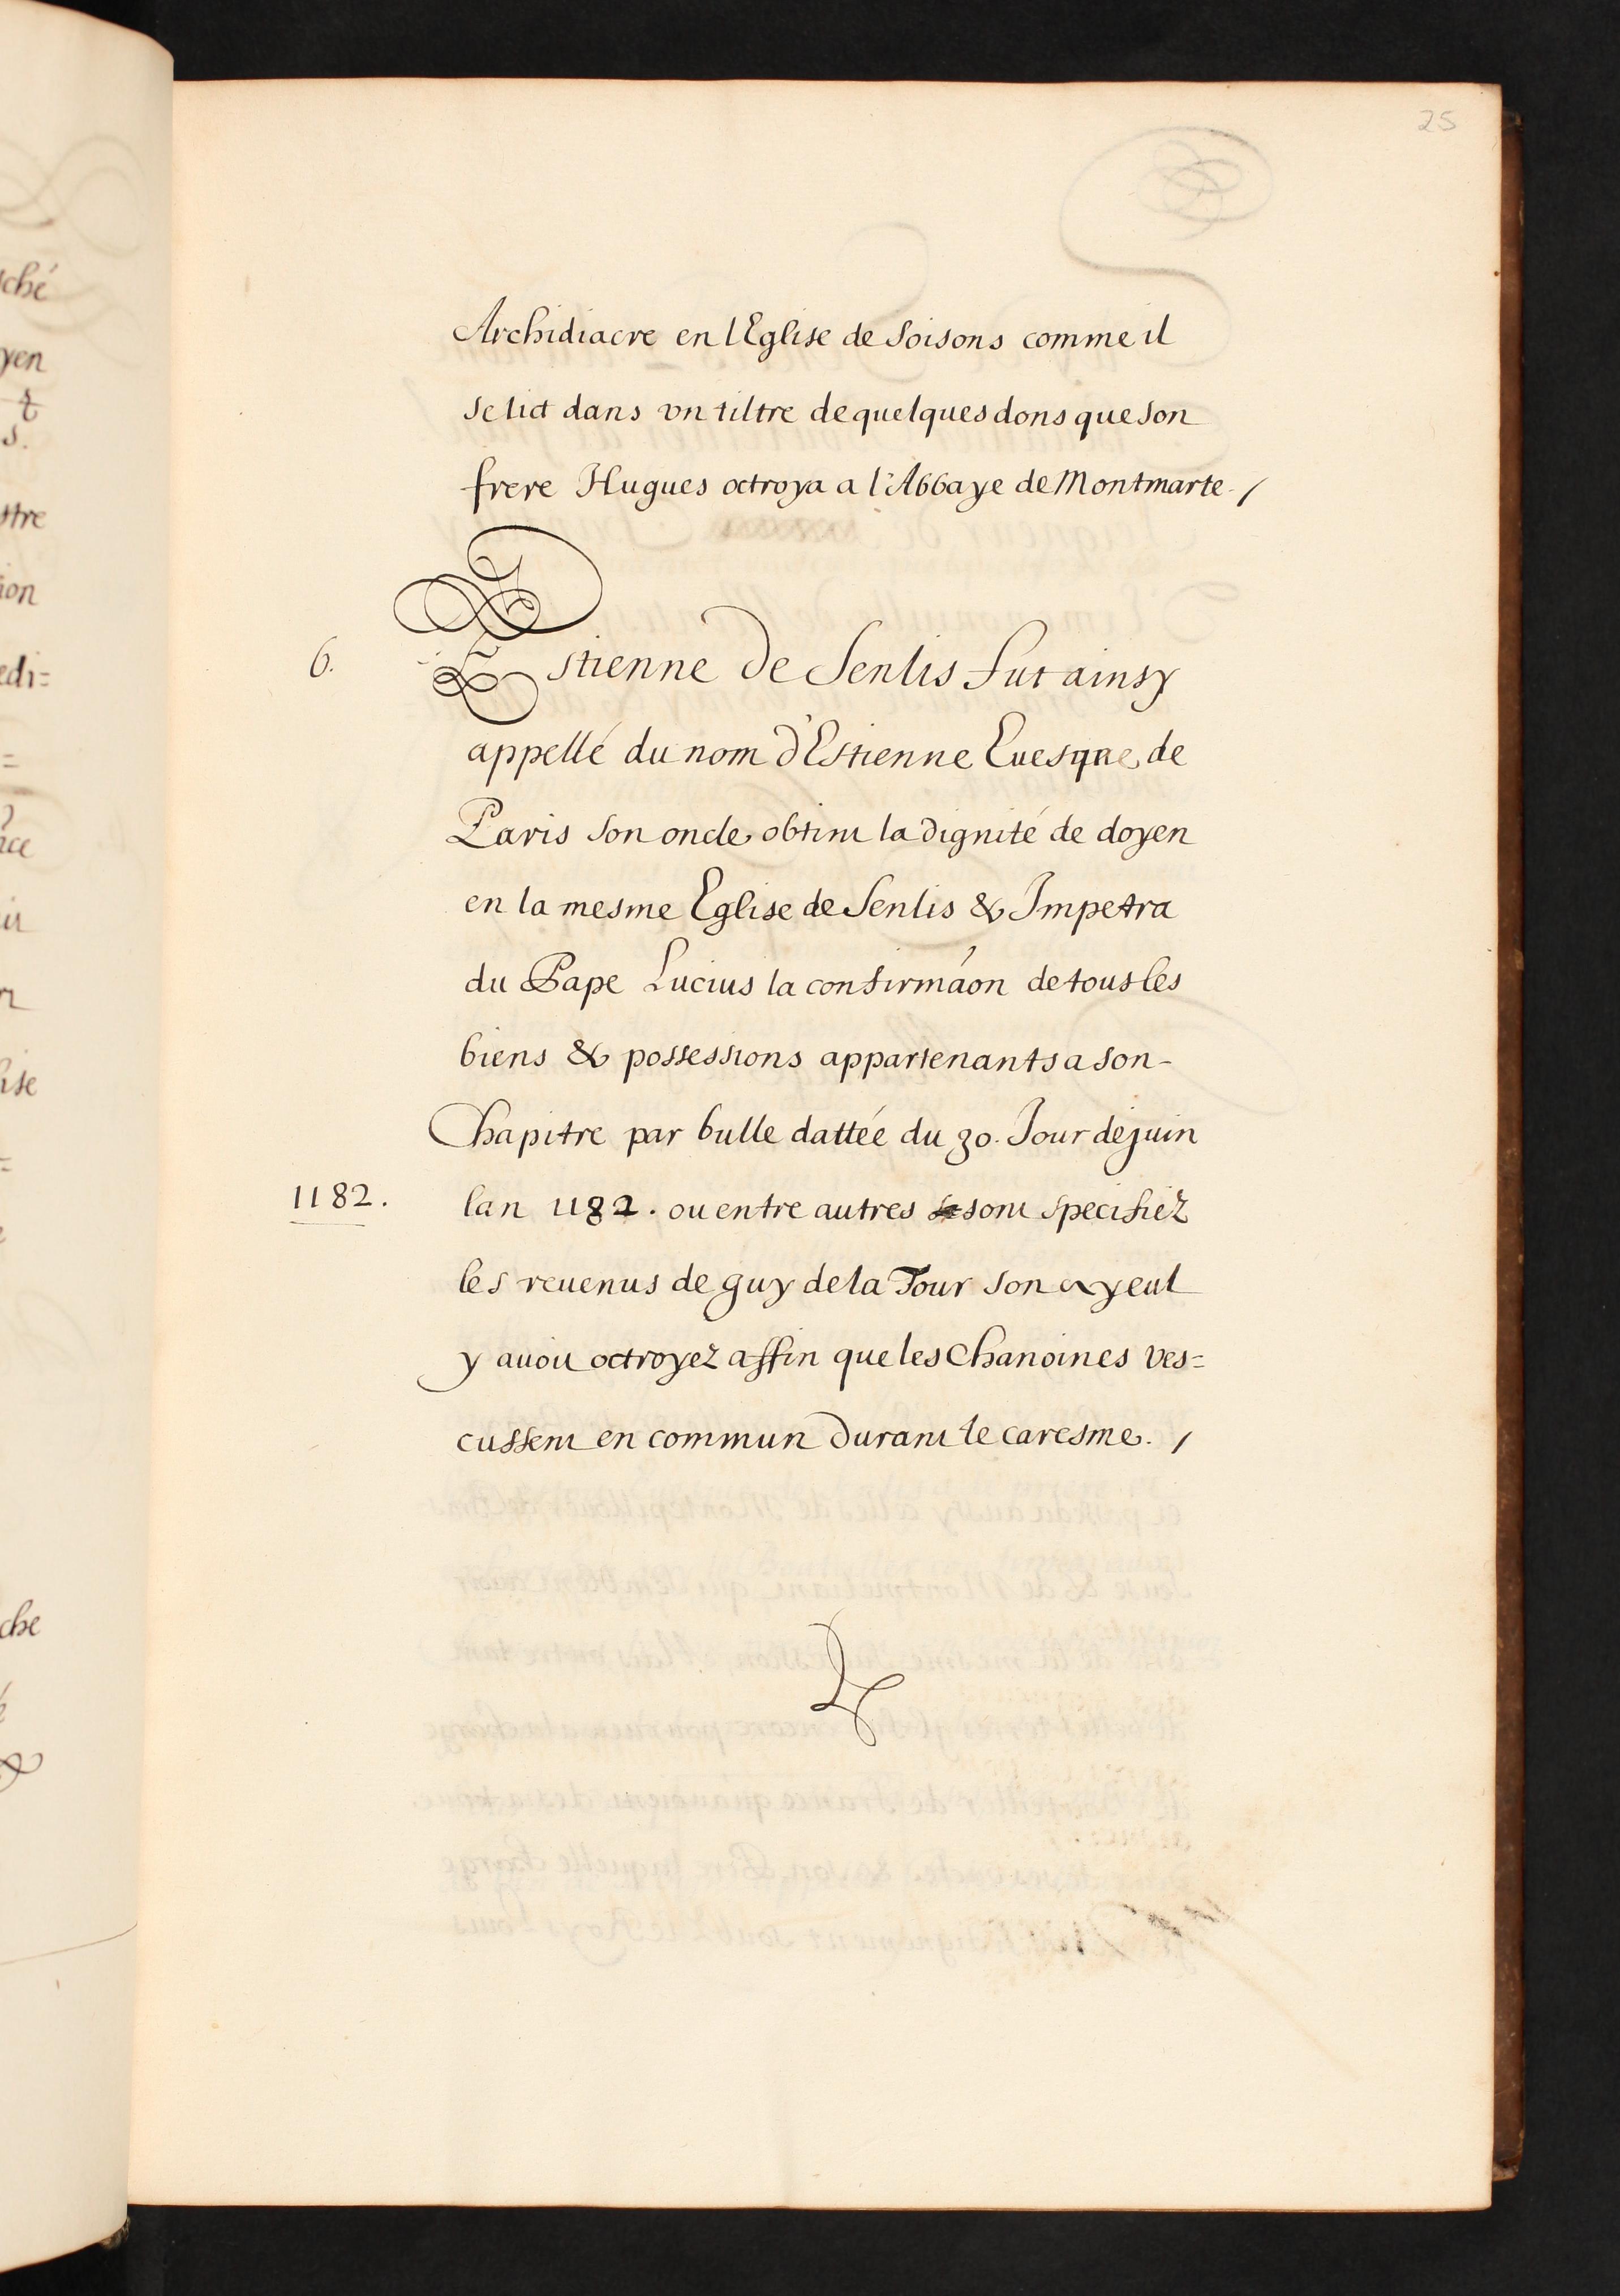 25
Archidiacre en lEglise de Soisons comme il
se lict dans vn tiltre de quelques dons que son
frere Hugues octroya a l'Abbaye de Montmarte. /
6. Estienne de Senlis fut ainsy
appellé du nom d'Estienne Euesque de
Paris son oncle obtint la dignité de doyen
en la mesme Eglise de Senlis & Impetra
du Pape Lucius la confirmãon de tous les
biens & possessions appartenants a son-
Chapitre par bulle dattée du 30. Jour de juin
1182. lan 1182. ou entre autres sont specifiez
les reuenus de guy de la Tour son ayeul
y auoit octroyez affin que les Chanoines ves=
cussent en commun durant le caresme. /